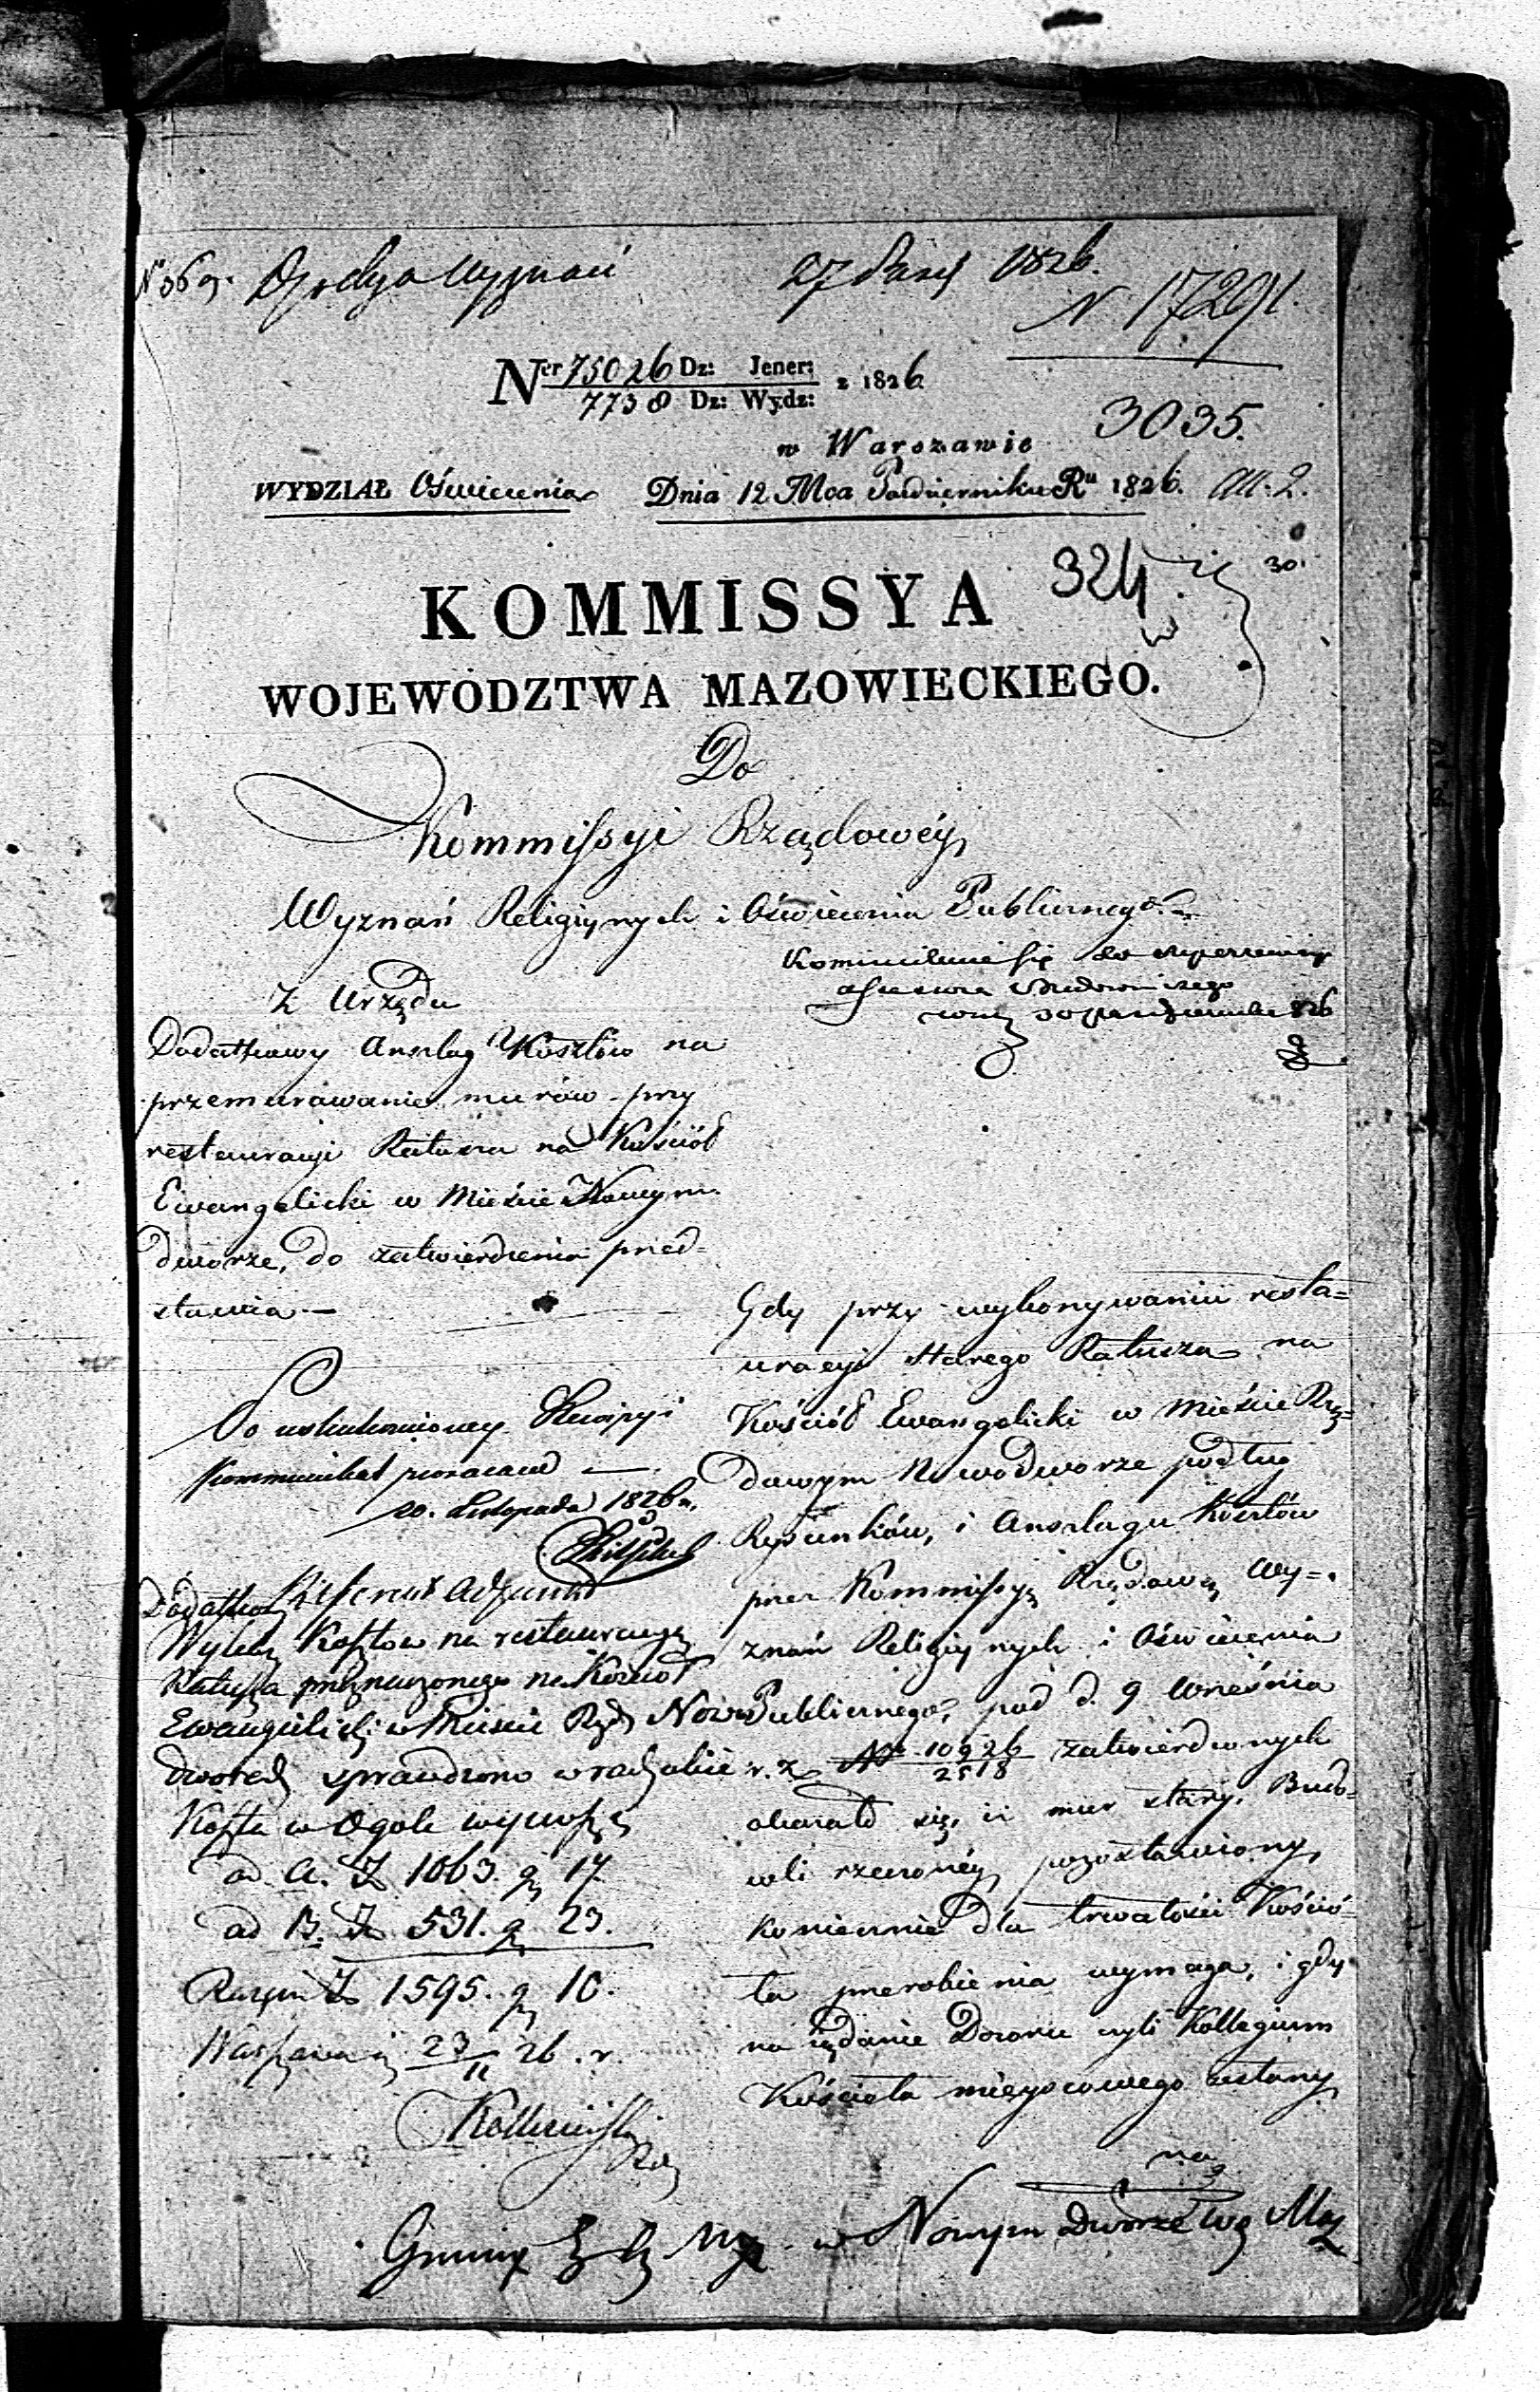 27 1826.
N 17291.
Ner 75026 Dz: Jener: z 1826
7738 Dz: Wydz:
3035.
w Warszawie
WYDZIAŁ Oświecenia Dnia 12 Mca Pazdziernika Ru 1826. All. 2.
324
30.
KOMMISSYA
WOJEWODZTWA MAZOWIECKIEGO.
Do
Kommissyi Rządowéy
Wyznań Religiynych i Oświecenia Publicznego.
Z Urzędu
Dodatkowy Anszlag Kosztów na
przemurowanie murów przy
restauracyi Ratusza na Kościół
Ewangelicki w Mieście Nowym
dworze, do zatwierdzenia przed=
stawia.—
Po uskutecznioney Rewizyi
Kommunikat zwracam —
20. Listopada 1826 r.
Referent Adjunkt
Dodatkowy
Wykaz Kosztow na restauracyą
Ratusza przeznaczonego na Kosciół
Ewangielicki w Miescie Rząd. Nowo
dworek sprawdzono w rachubie
Koszta w Ogóle wynoszą
ad A. Zł 1063. g 17.
ad B. Zł 531. g 23.
Razem Zł 1595. g 10.
Warszawa d 23/11 26. r.
Gdy przy wykonywaniu resta=
uracyi starego Ratusza na
Kościół Ewangelicki w Mieście Rzą=
dowym Nowodworze podług
Rysunków, i Anszlagu Kosztów
przez Kommissyą Rządową Wy=
znań Religiynych i Oświecenia
Publicznego, pod d. 9 Września
r. z. Nr 10926/2518 zatwierdzonych
okazało się, iż mur stary, Budo=
wli rzeczonéy pozostawiony,
koniecznie dla trwałości Kościo=
ła przerobienia wymaga, i gdy
na żądanie Dozoru czyli Kollegium
Kościoła mieyscowego zestany
na
Gminy w Nowym Dworze Wo Maz